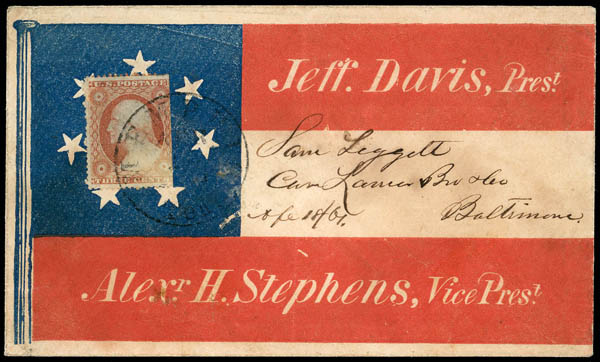 U.S. POSTAGE
THREE CENTS
Jeff. Davis, Prest.
Sam Leggett
Care Lanier Bro & Co
Baltimore
Alexr. H. Stephens, Vice Prest.